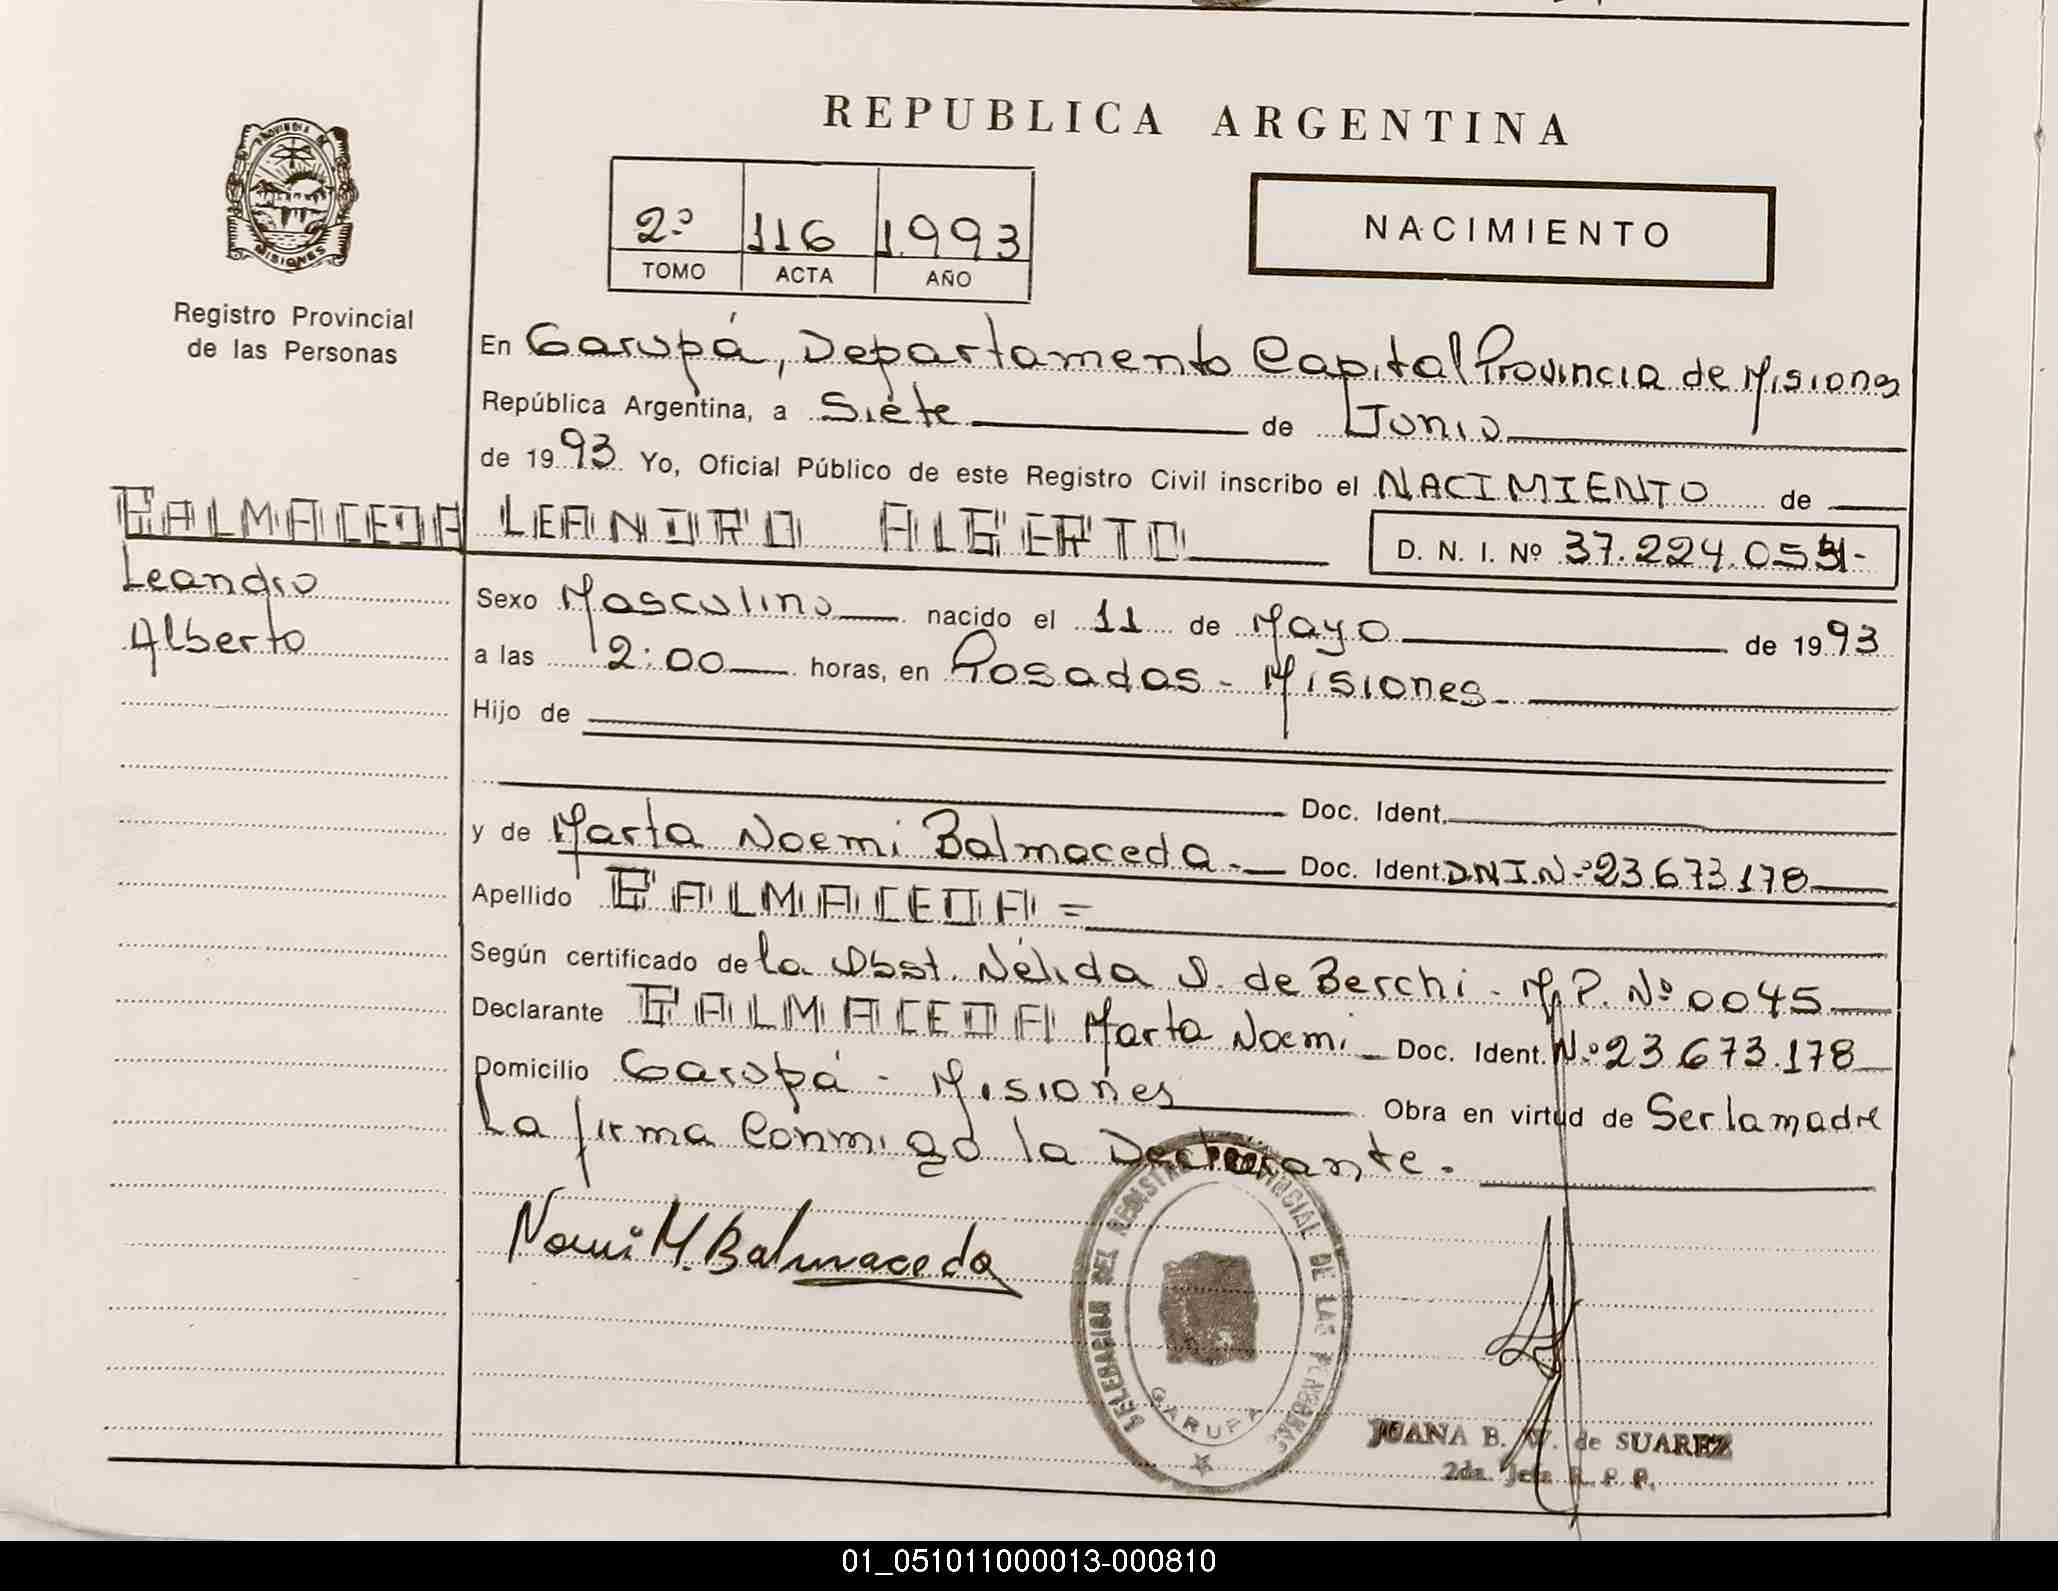 REPUBLICA ARGENTINA
PROVINCIA DE
MISIONES
Registro Provincial
de las Personas
2º 116 1.993
TOMO ACTA AÑO
NACIMIENTO
En Garupá, Departamento Capital Provincia de Misiones
República Argentina, a Siete de Junio
de 1993 Yo, Oficial Público de este Registro Civil inscribo el NACIMIENTO de
BALMACEDA LEANDRO ALBERTO D. N. I. Nº 37.224.05
Leandro
Alberto
Sexo Masculino nacido el 11 de Mayo de 1993
a las 12:00 horas, en Posadas - Misiones
Hijo de
Doc. Ident.
y de Marta Noemi Balmaceda.- Doc. Ident. DNI.Nº 23.673.178
Apellido BALMACEDA =
Según certificado de la Obst. Nélida S. de Berchi - M.P. Nº 0045
Declarante BALMACEDA Marta Noemi Doc. Ident. N.º 23.673.178
Domicilio Garupá - Misiones Obra en virtud de Ser la madre
La firma Conmigo la Declarante.
Noemi M. Balmaceda
DELEGACION DEL REGISTRO PROVINCIAL DE LAS PERSONAS
GARUPA
JUANA B. de SUAREZ
2da. Jefa R. P. P.
01_051011000013-000810